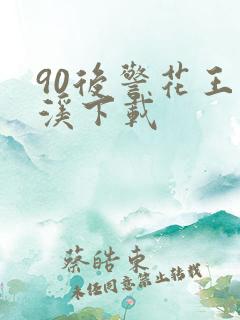 90後警花王
溪下載
蔡皓東
未经同意禁止转载